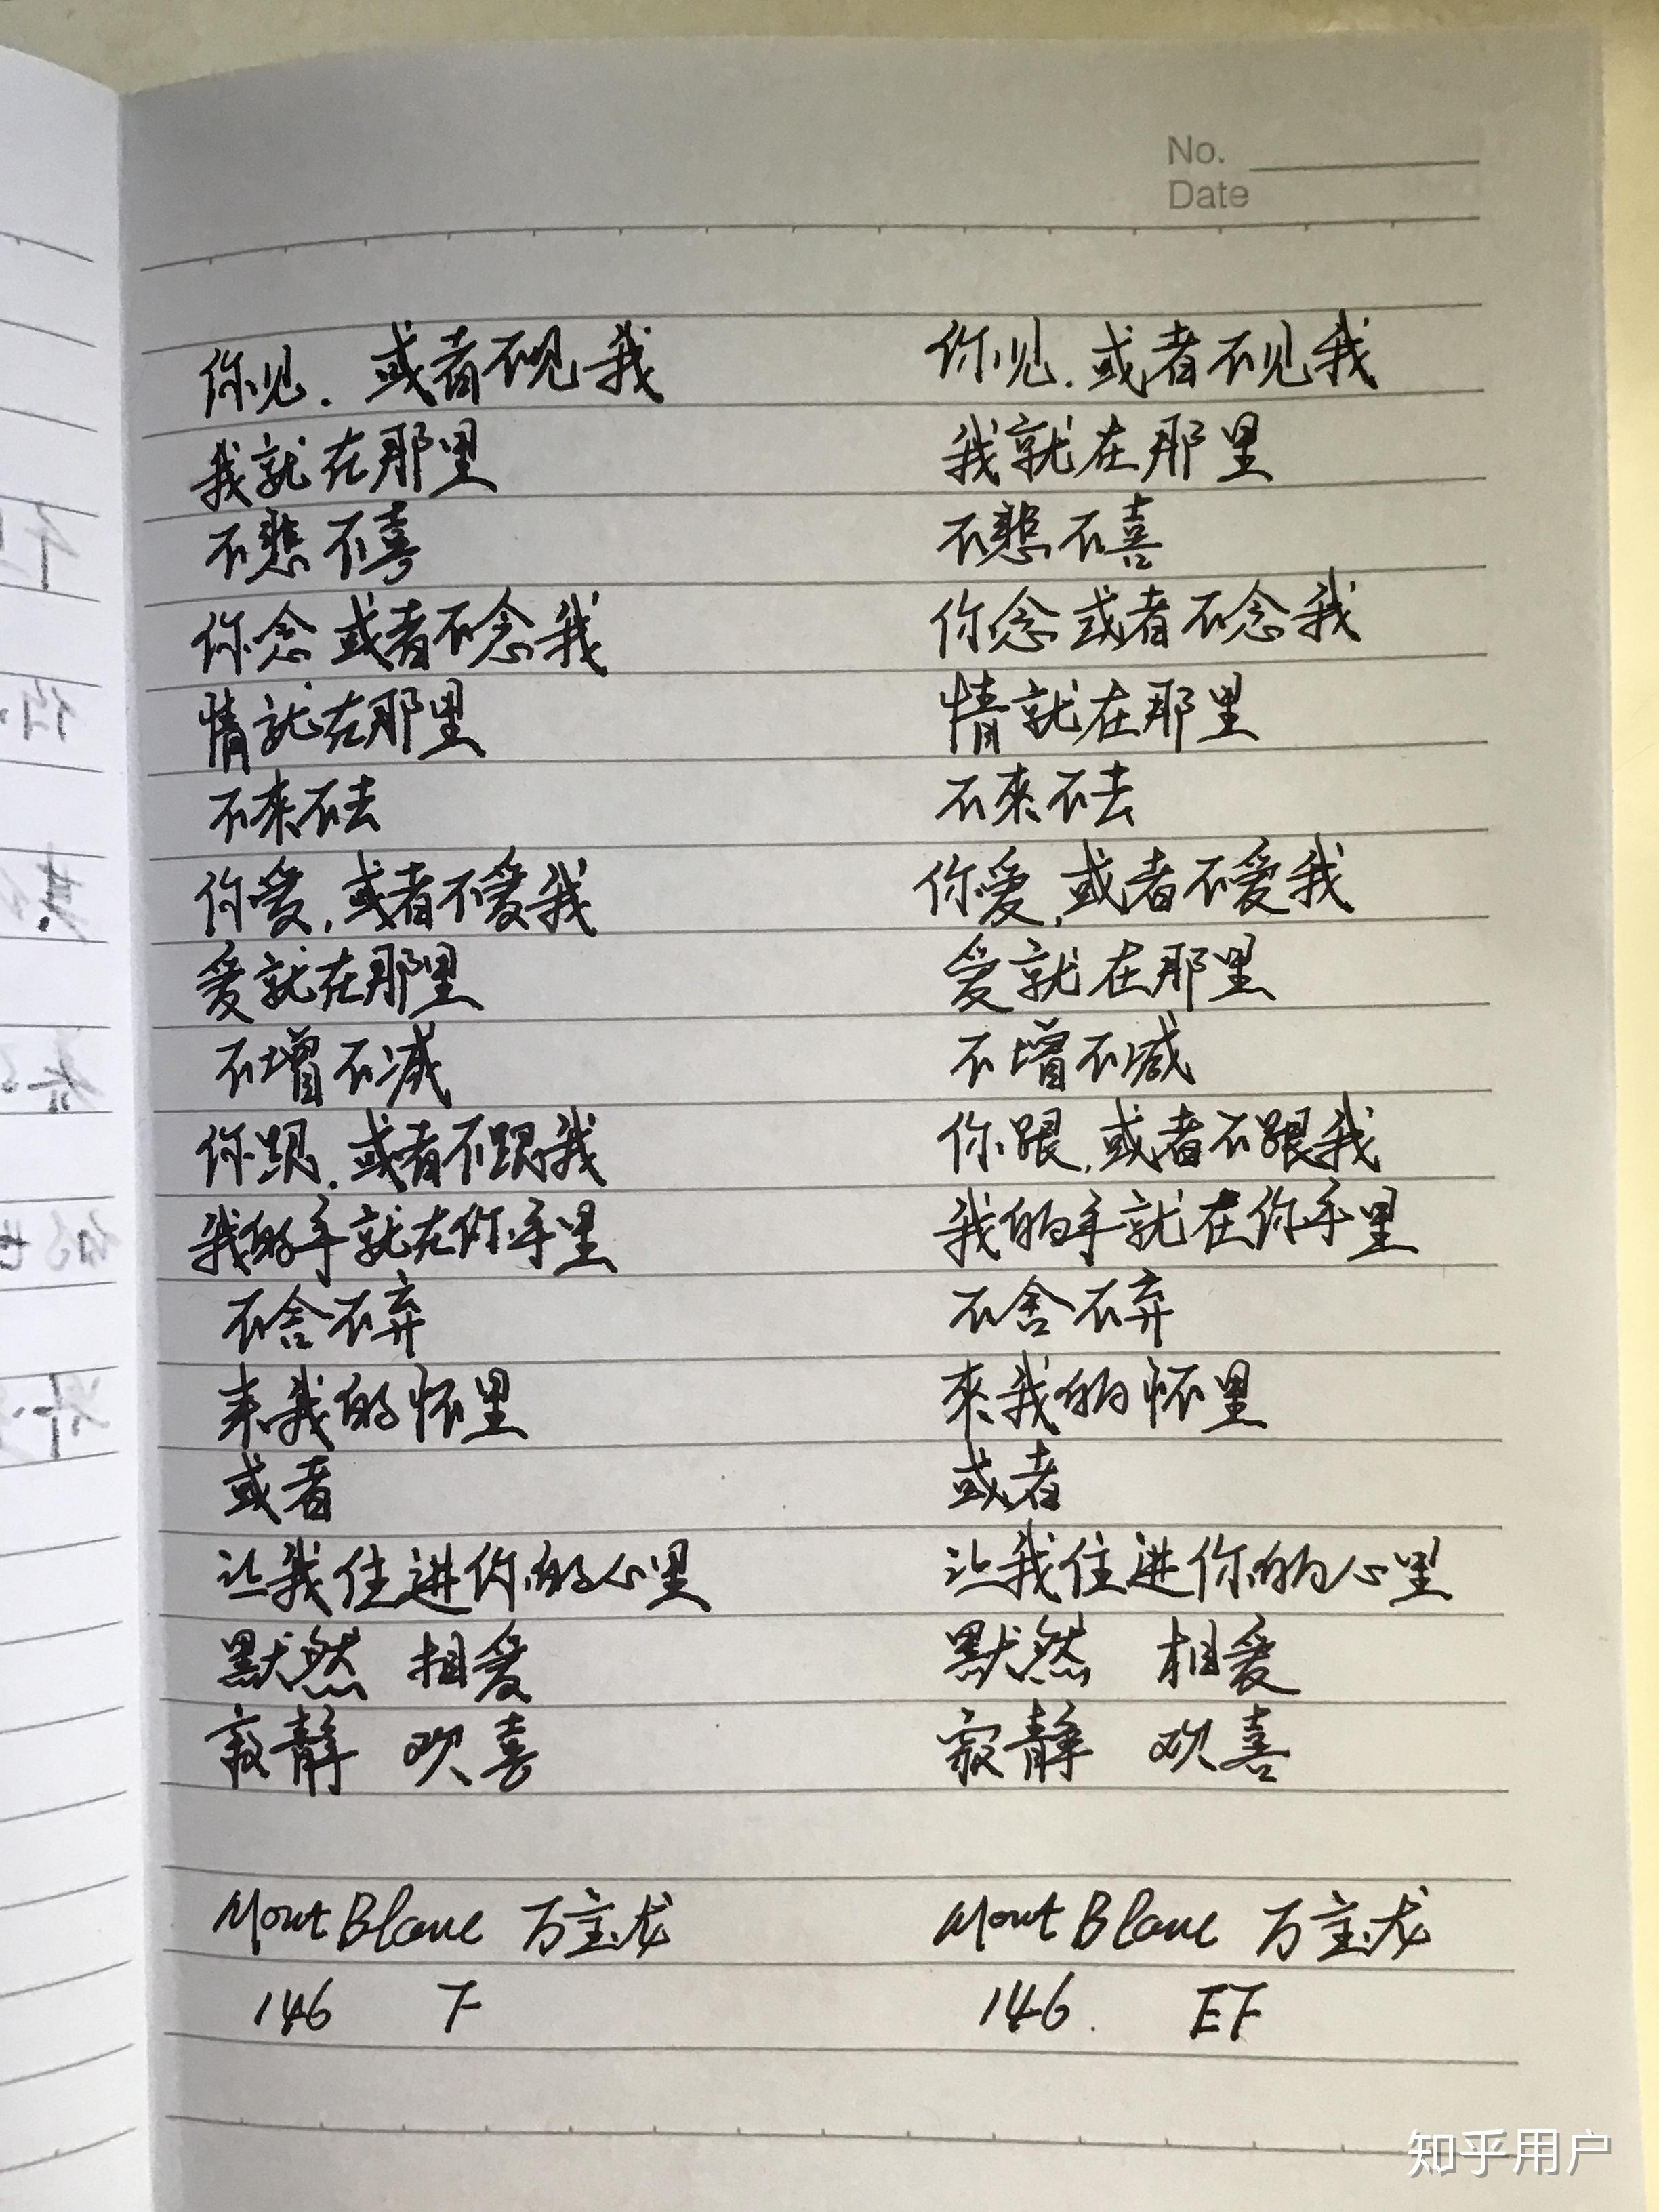 No.
Date
你见.或者不见我
我就在那里
不悲不喜
你念或者不念我
情就在那里
不来不去
你爱,或者不爱我
爱就在那里
不增不减
你跟.或者不跟我
我的手就在你手里
不舍不弃
来我的怀里
或者
让我住进你的心里
默然 相爱
寂静 欢喜
MontBlanc 万宝龙
146 F
你见.或者不见我
我就在那里
不悲不喜
你念或者不念我
情就在那里
不來不去
你爱,或者不爱我
爱就在那里
不增不减
你跟,或者不跟我
我的手就在你手里
不舍不弃
來我的怀里
或者
让我住进你的心里
默然 相爱
寂静 欢喜
Mont Blanc 万宝龙
146. EF
知乎用户